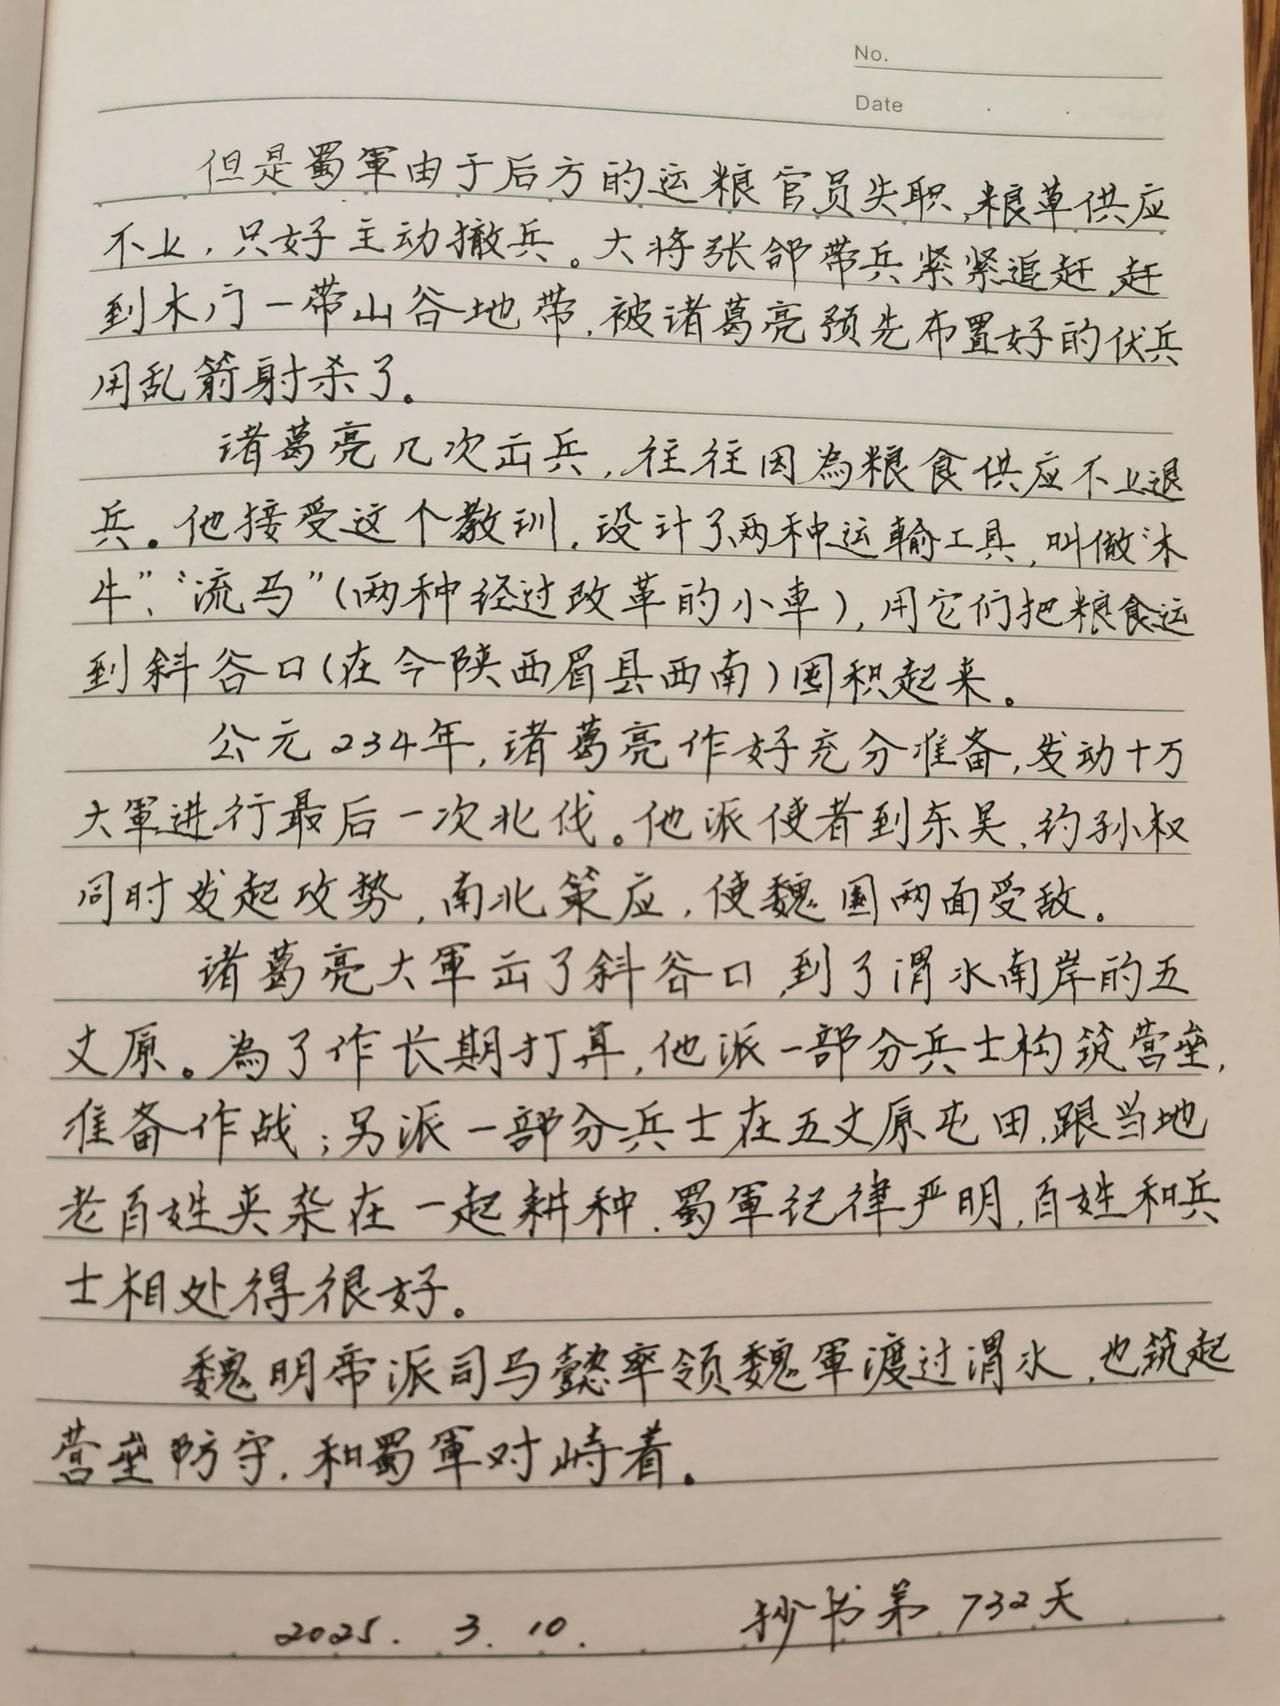 No.
Date
但是蜀軍由于后方的运粮官员失职,粮草供应
不上,只好主动撤兵。大将张郃带兵紧紧追赶,赶
到木门一带山谷地带,被诸葛亮预先布置好的伏兵
用乱箭射杀了。
诸葛亮几次出兵,往往因為粮食供应不上退
兵。他接受这个教训,设计了两种运输工具,叫做“木
牛”、“流马”(两种经过改革的小車),用它们把粮食运
到斜谷口(在今陕西眉县西南)囤积起来。
公元234年,诸葛亮作好充分准备,发动十万
大軍进行最后一次北伐。他派使者到东吴,约孙权
同时发起攻势,南北策应,使魏國两面受敌。
诸葛亮大軍出了斜谷口,到了渭水南岸的五
丈原。為了作长期打算,他派一部分兵士构筑营垒,
准备作战;另派一部分兵士在五丈原屯田,跟当地
老百姓夹杂在一起耕种.蜀軍纪律严明,百姓和兵
士相处得很好。
魏明帝派司马懿率领魏軍渡过渭水,也筑起
营垒防守,和蜀軍对峙着。
2025. 3. 10. 抄书第732天